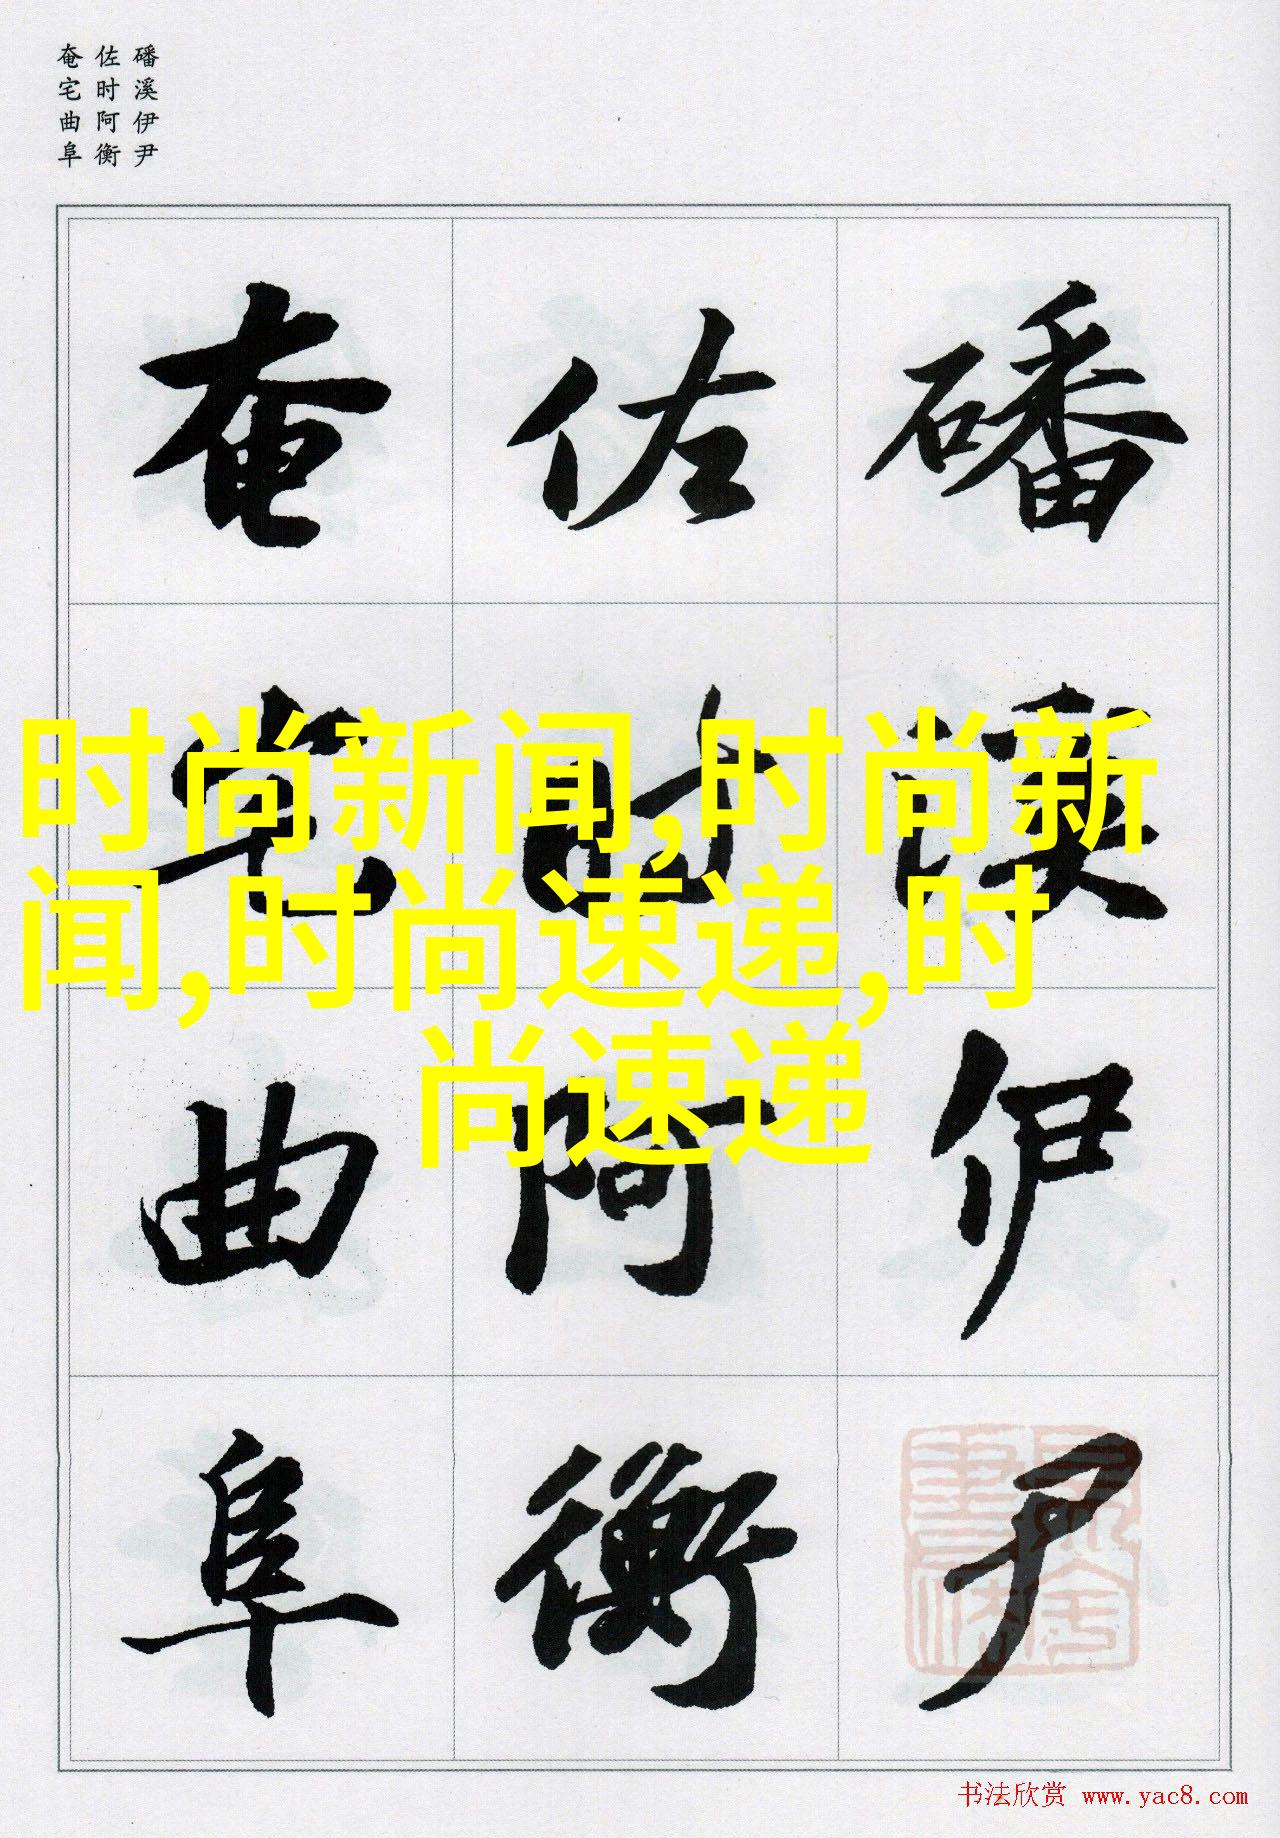 磻溪伊尹
佐时阿衡
奄宅曲阜
磻溪伊尹
佐时阿衡
奄宅曲阜
时尚新闻,时尚新
闻,时尚速递,时
尚速递
书法欣赏 www.yac8.com